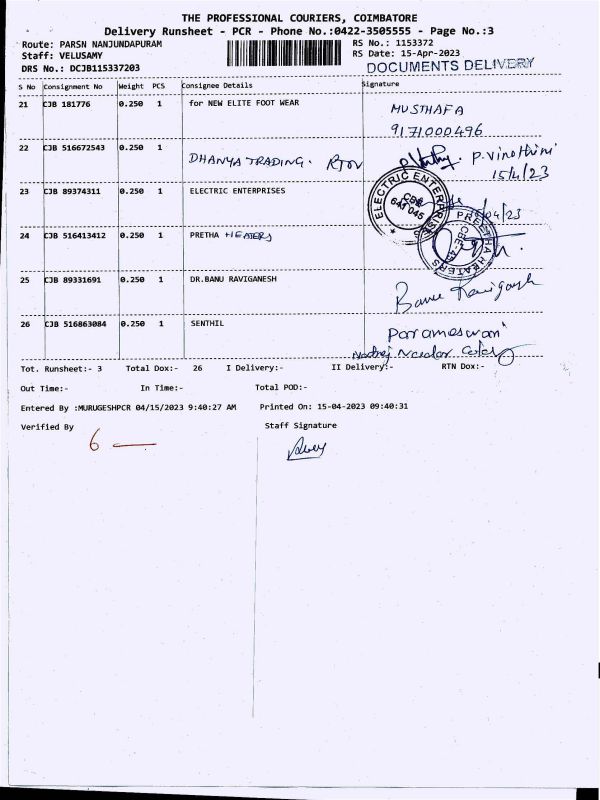 THE PROFESSIONAL COURIERS, COIMBATORE
Delivery Runsheet - PCR - Phone No.:0422-3505555 - Page No.:3
Route: PARSN NANJUNDAPURAM
RS No.: 1153372
Staff: VELUSAMY
RS Date: 15-Apr-2023
DRS No.: DCJB115337203
DOCUMENTS DELIVERY
S No Consignment No Weight PCS Consignee Details Signature
21 CJB 181776 0.250 1 for NEW ELITE FOOT WEAR MUSTHAFA
9171000496
22 CJB 516672543 0.250 1 DHANYA TRADING. P.Vinothini
15/4/23
23 CJB 89374311 0.250 1 ELECTRIC ENTERPRISES
ELECTRIC ENTERPRISES
CBE
641 045
04/23
24 CJB 516413412 0.250 1 PRETHA HEATERS
PREETHA HEATERS
25 CJB 89331691 0.250 1 DR.BANU RAVIGANESH
Banu Raviganesh
26 CJB 516863084 0.250 1 SENTHIL Parameswari
Tot. Runsheet:- 3 Total Dox:- 26 I Delivery:- II Delivery:- RTN Dox:-
Out Time:- In Time:- Total POD:-
Entered By :MURUGESHPCR 04/15/2023 9:40:27 AM Printed On: 15-04-2023 09:40:31
Verified By Staff Signature
6